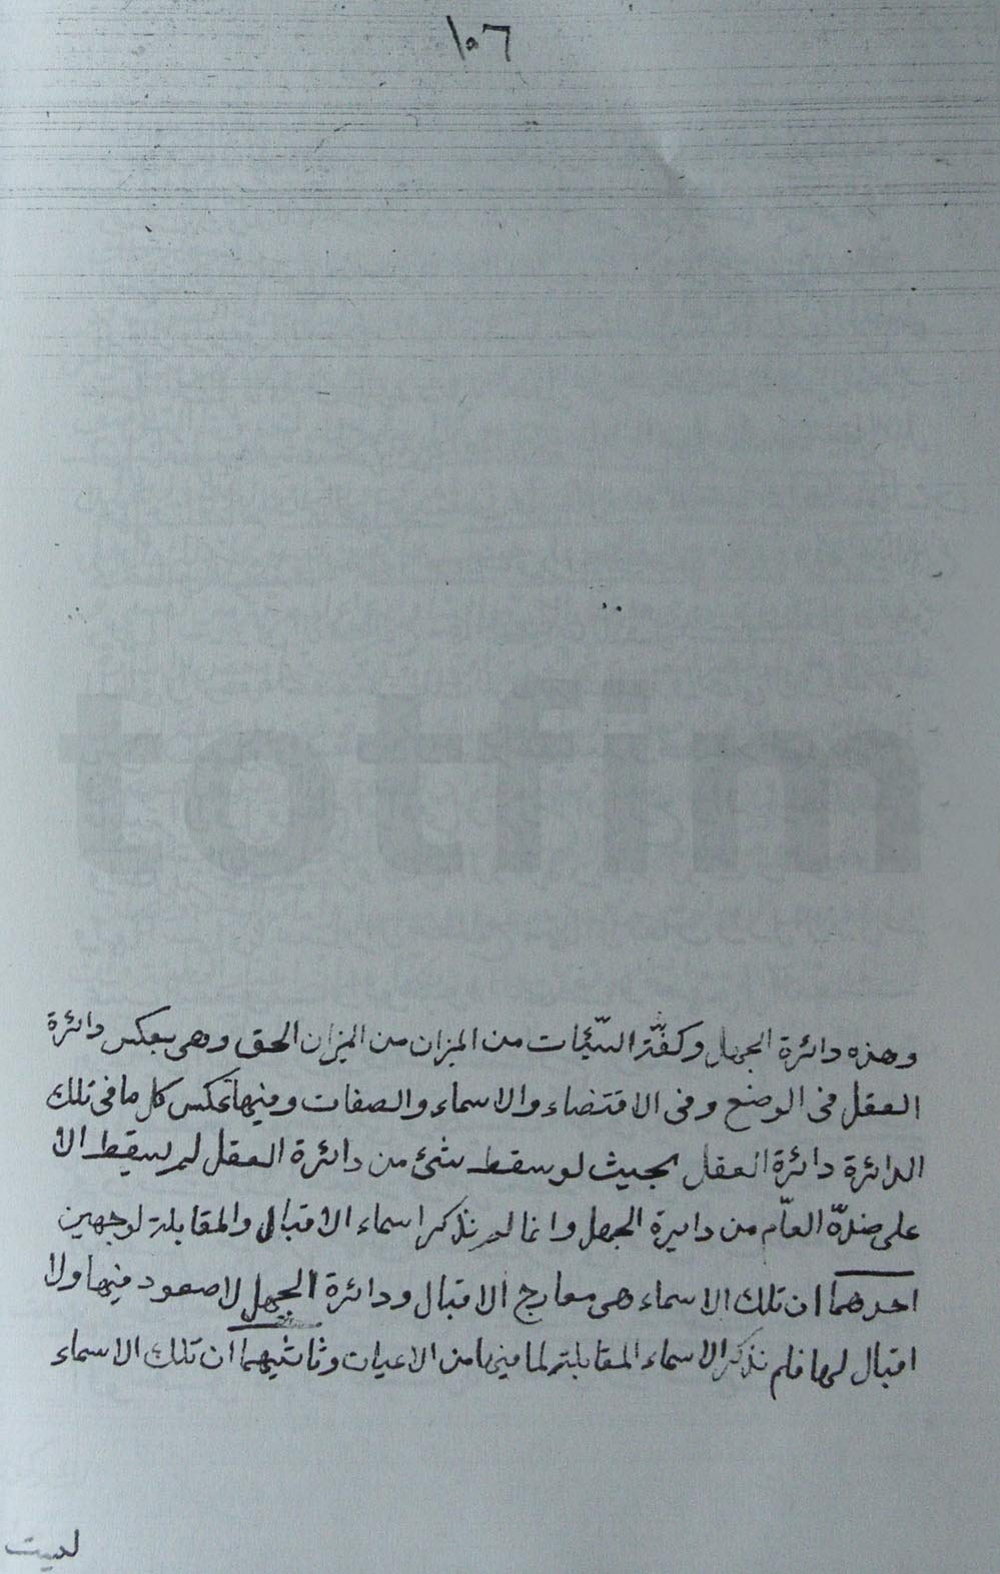 ١٠٦
totfim
وهذه دائرة الجهل وكفّة السّيّئات من الميزان من الميزان الحق وهى بعكس دائرة
العقل فى الوضع وفى الاقتضاء والاسماء والصفات وفيها بعكس كل ما فى تلك
الدائرة دائرة العقل بحيث لو سقط شئ من دائرة العقل لم يسقط الا
على ضدّه العامّ من دايرة الجهل وانما لم نذكر اسماء الاقبال والمقابلة لوجهين
احدهما ان تلك الاسماء هى معارج الاقبال ودائرة الجهل لا صعود فيها ولا
اقبال لها فلم نذكر الاسماء المقابلة لما فيها من الاعيان وثانيهما ان تلك الاسماء
ليست